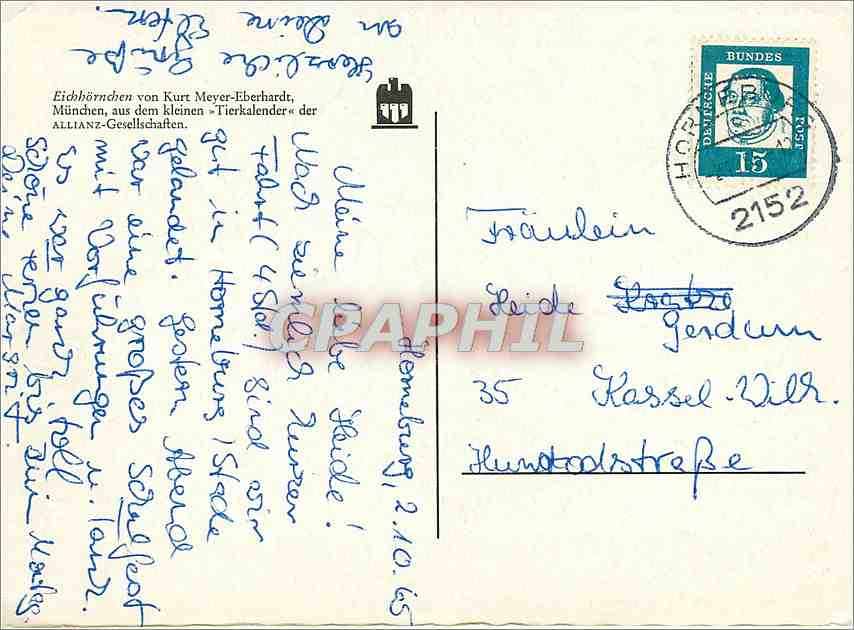 Eichhörnchen von Kurt Meyer-Eberhardt,
München, aus dem kleinen »Tierkalender« der
ALLIANZ-Gesellschaften.
Horneburg, 2.10.65
Meine liebe Heide!
Nach ziemlich kurzer
Fahrt (4 Std.) sind wir
gut in Horneburg/Stade
gelandet. Gestern Abend
war eine großes Schulfest
mit Vorführungen u. Tanz.
Es war ganz toll
Schöne Ferien bis zum
Deine Margrit.
Herzliche Grüße
an Deine Eltern.
DEUTSCHE
BUNDES
POST
15
2152
Fräulein
Heide
Gerdum
35 Kassel-Wilh.
Hunrodstraße
CPAPHIL